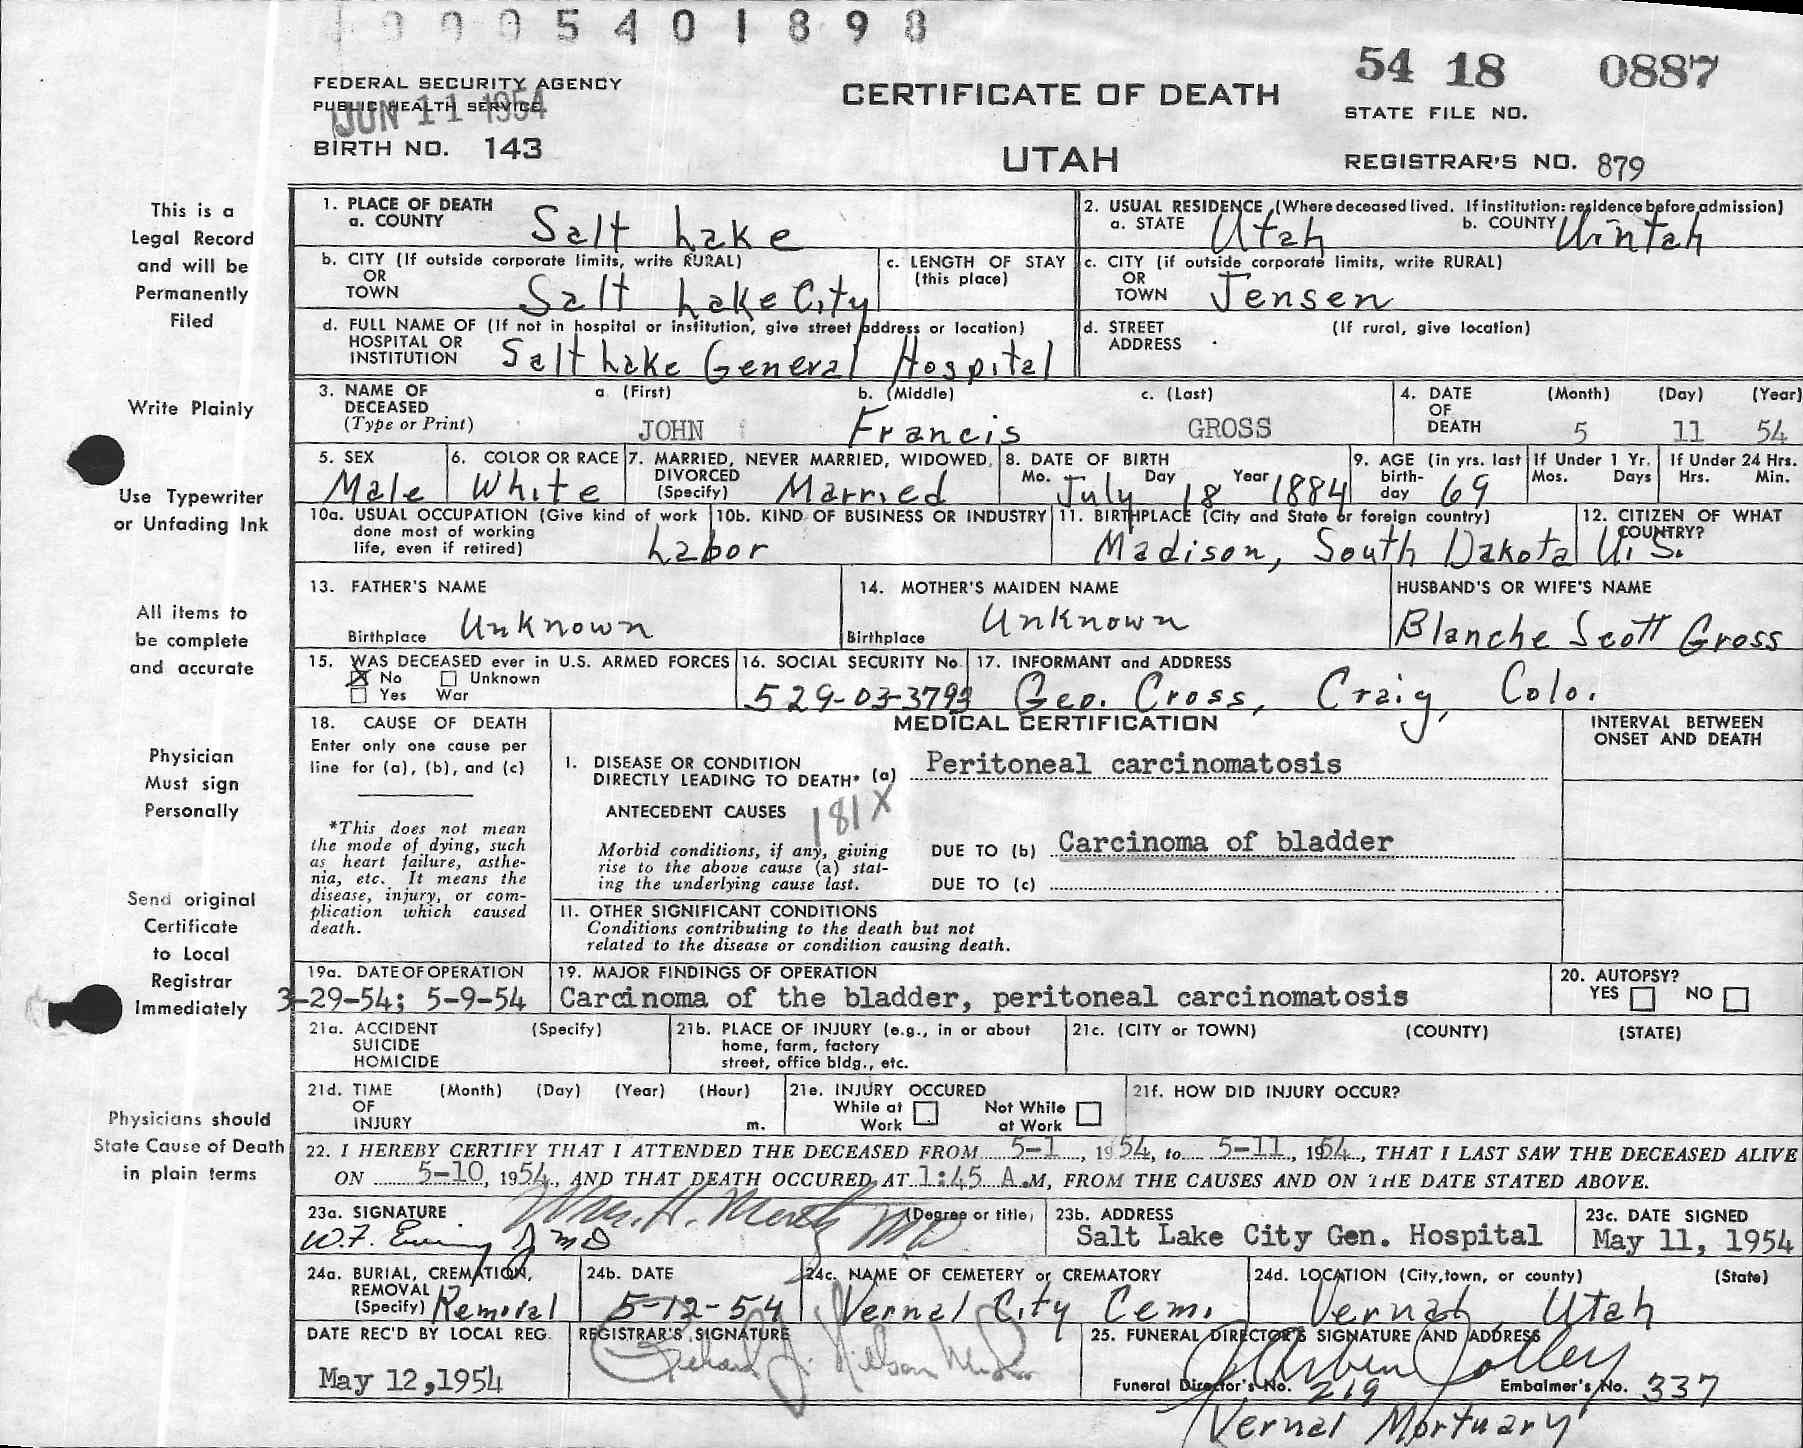 0005401898
54 18 0887
FEDERAL SECURITY AGENCY
PUBLIC HEALTH SERVICE
JUN 11 1954
CERTIFICATE OF DEATH
STATE FILE NO.
BIRTH NO. 143
UTAH
REGISTRAR'S NO. 879
This is a
Legal Record
and will be
Permanently
Filed
Write Plainly
Use Typewriter
or Unfading Ink
All items to
be complete
and accurate
Physician
Must sign
Personally
Send original
Certificate
to Local
Registrar
Immediately
Physicians should
State Cause of Death
in plain terms
1. PLACE OF DEATH
a. COUNTY Salt Lake
2. USUAL RESIDENCE (Where deceased lived. If institution: residence before admission)
a. STATE Utah b. COUNTY Uintah
b. CITY (If outside corporate limits, write RURAL)
OR
TOWN Salt Lake City
c. LENGTH OF STAY
(this place)
c. CITY (if outside corporate limits, write RURAL)
OR
TOWN Jensen
d. FULL NAME OF (If not in hospital or institution, give street address or location)
HOSPITAL OR
INSTITUTION Salt Lake General Hospital
d. STREET (If rural, give location)
ADDRESS
3. NAME OF a (First) b. (Middle) c. (Last)
DECEASED
(Type or Print) JOHN Francis GROSS
4. DATE (Month) (Day) (Year)
OF
DEATH 5 11 54
5. SEX
Male
6. COLOR OR RACE
White
7. MARRIED, NEVER MARRIED, WIDOWED,
DIVORCED
(Specify) Married
8. DATE OF BIRTH
Mo. July Day 18 Year 1884
9. AGE (in yrs. last
birth-
day 69
If Under 1 Yr.
Mos. Days
If Under 24 Hrs.
Hrs. Min.
10a. USUAL OCCUPATION (Give kind of work
done most of working
life, even if retired) Labor
10b. KIND OF BUSINESS OR INDUSTRY
11. BIRTHPLACE (City and State or foreign country)
Madison, South Dakota
12. CITIZEN OF WHAT
COUNTRY?
U.S.
13. FATHER'S NAME
Unknown
Birthplace
14. MOTHER'S MAIDEN NAME
Unknown
Birthplace
HUSBAND'S OR WIFE'S NAME
Blanche Scott Gross
15. WAS DECEASED ever in U.S. ARMED FORCES
No Unknown
Yes War
16. SOCIAL SECURITY No.
529-03-3793
17. INFORMANT and ADDRESS
Geo. Cross, Craig, Colo.
18. CAUSE OF DEATH
Enter only one cause per
line for (a), (b), and (c)
*This does not mean
the mode of dying, such
as heart failure, asthe-
nia, etc. It means the
disease, injury, or com-
plication which caused
death.
MEDICAL CERTIFICATION
INTERVAL BETWEEN
ONSET AND DEATH
I. DISEASE OR CONDITION
DIRECTLY LEADING TO DEATH* (a) Peritoneal carcinomatosis
ANTECEDENT CAUSES
181X
Morbid conditions, if any, giving
rise to the above cause (a) stat-
ing the underlying cause last.
DUE TO (b) Carcinoma of bladder
DUE TO (c)
11. OTHER SIGNIFICANT CONDITIONS
Conditions contributing to the death but not
related to the disease or condition causing death.
19a. DATE OF OPERATION
3-29-54; 5-9-54
19. MAJOR FINDINGS OF OPERATION
Carcinoma of the bladder, peritoneal carcinomatosis
20. AUTOPSY?
YES NO
21a. ACCIDENT (Specify)
SUICIDE
HOMICIDE
21b. PLACE OF INJURY (e.g., in or about
home, farm, factory
street, office bldg., etc.
21c. (CITY or TOWN) (COUNTY) (STATE)
21d. TIME (Month) (Day) (Year) (Hour)
OF
INJURY m.
21e. INJURY OCCURED
While at Work Not While at Work
21f. HOW DID INJURY OCCUR?
22. I HEREBY CERTIFY THAT I ATTENDED THE DECEASED FROM 5-1, 1954, to 5-11, 1954, THAT I LAST SAW THE DECEASED ALIVE
ON 5-10, 1954, AND THAT DEATH OCCURED AT 1:45 A.M, FROM THE CAUSES AND ON THE DATE STATED ABOVE.
23a. SIGNATURE (Degree or title)
W.F. MD
Wm. H. MD
23b. ADDRESS
Salt Lake City Gen. Hospital
23c. DATE SIGNED
May 11, 1954
24a. BURIAL, CREMATION,
REMOVAL
(Specify) Removal
24b. DATE
5-12-54
24c. NAME OF CEMETERY or CREMATORY
Vernal City Cem.
24d. LOCATION (City, town, or county) (State)
Vernal, Utah
DATE REC'D BY LOCAL REG.
May 12, 1954
REGISTRAR'S SIGNATURE
25. FUNERAL DIRECTOR'S SIGNATURE AND ADDRESS
Funeral Director's No. 219 Embalmer's No. 337
Vernal Mortuary